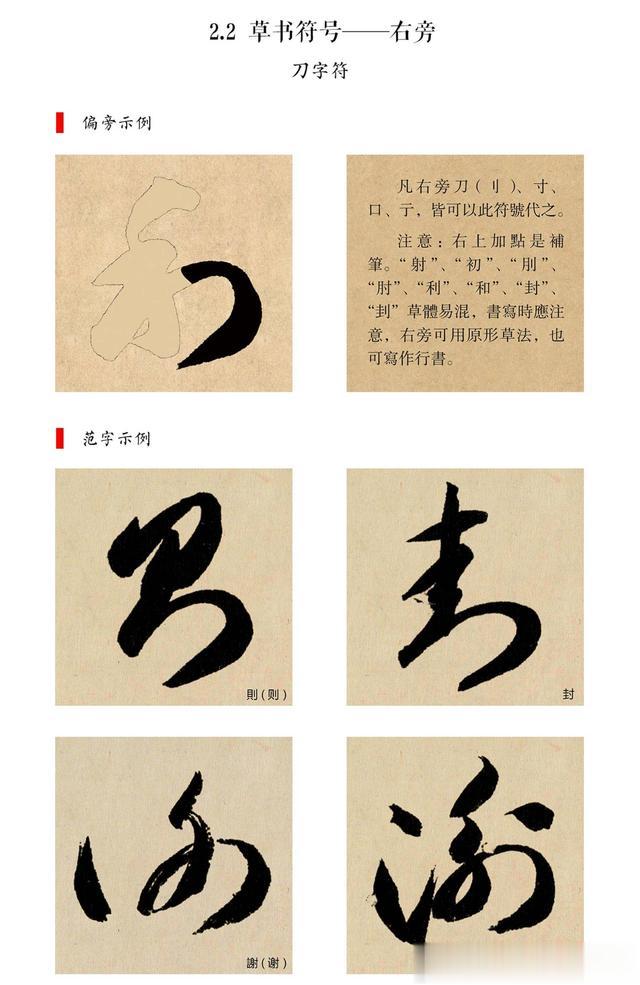 2.2 草书符号——右旁
刀字符
偏旁示例
凡右旁刀(刂)、寸、
口、亍,皆可以此符號代之。
注意:右上加點是補
筆。“射”、“初”、“刖”、
“肘”、“利”、“和”、“封”、
“刲”草體易混,書寫時應注
意,右旁可用原形草法,也
可寫作行書。
范字示例
則(则)
封
謝(谢)